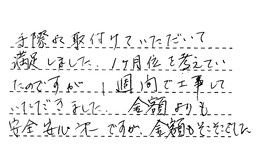 手際よく取付けていただいて
満足しました。1ヶ月位を考えてい
たのですが、1週間で工事して
いただきました。金額よりも
安全安心第一ですが、金額もそこそこでした